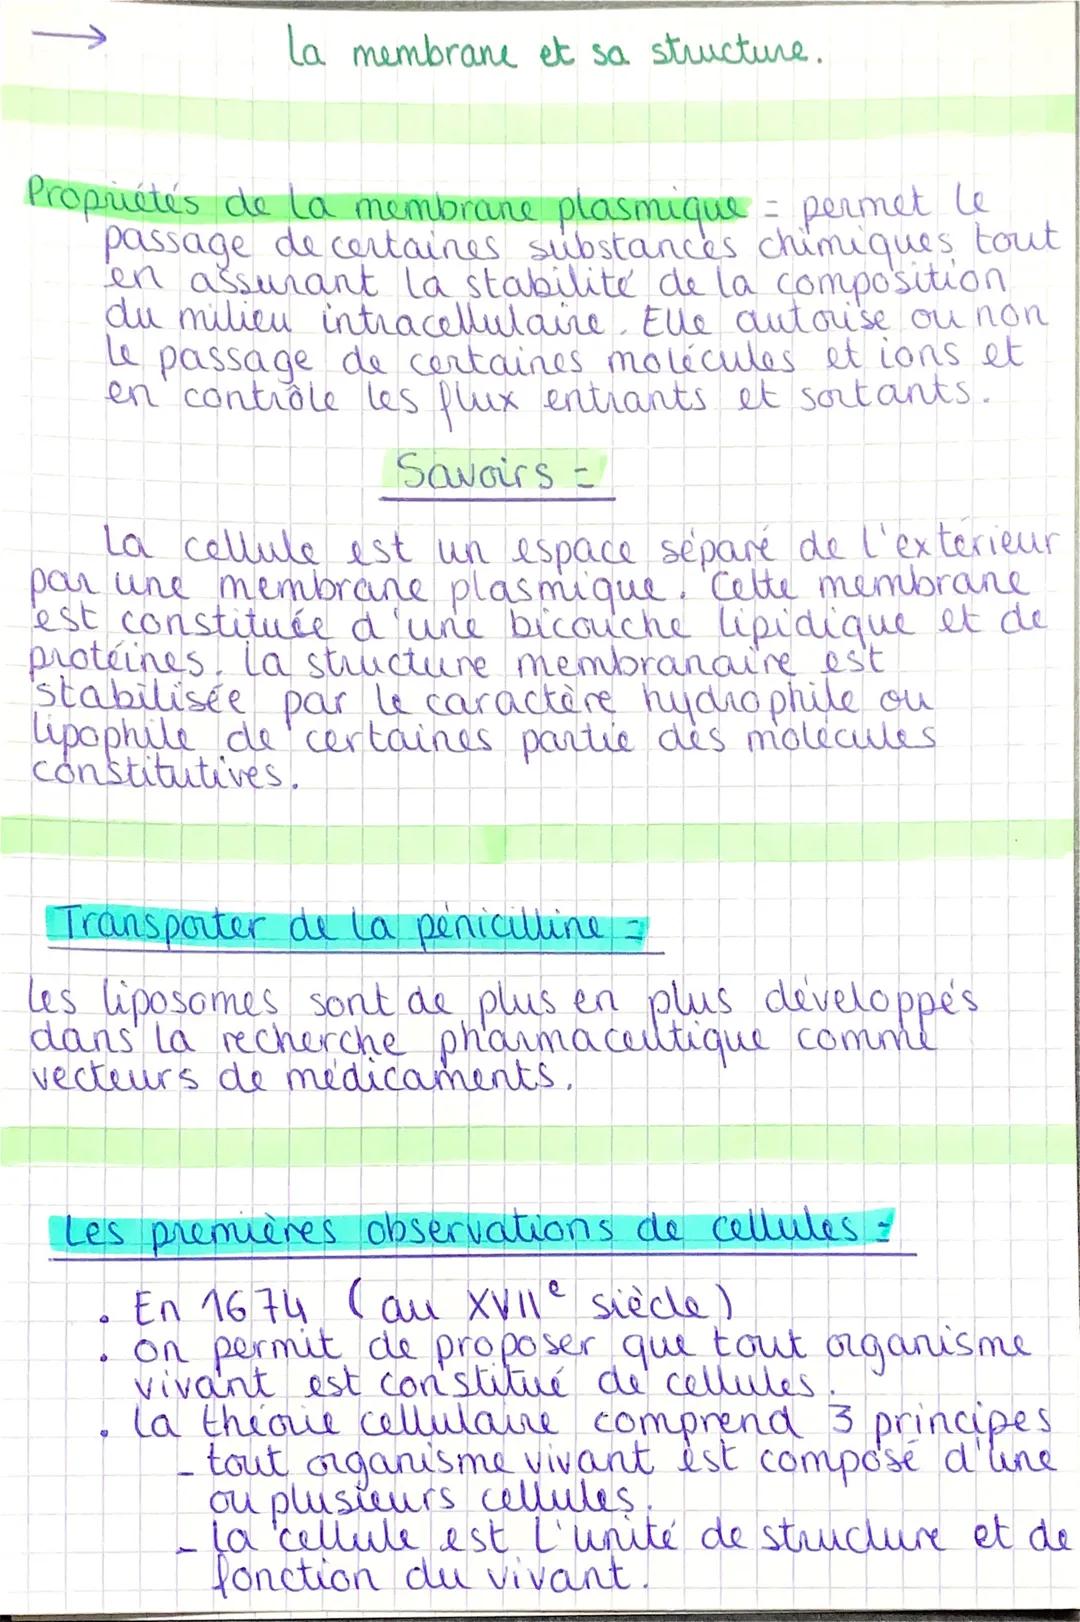 → La membrane et sa structure.
Propriétés de la membrane plasmique = permet le
passage de certaines substances chimiques tout
en assurant la stabilité de la composition
du milieu intracellulaire. Elle autorise ou non
le passage de certaines molécules et ions et
en contrôle les flux entrants et sortants.
Savoirs =
La cellule est un espace séparé de l'extérieur
par une membrane plasmique. Cette membrane
est constituée d'une bicouche lipidique et de
protéines. La structure membranaire est
stabilisée par le caractère hydrophile ou
lipophile de certaines partie des molécules
constitutives.
Transporter de la pénicilline =
Les liposomes sont de plus en plus développés
dans la recherche pharmaceutique comme
vecteurs de médicaments.
Les premières observations de cellules =
• En 1674 (au XVIIe siècle)
• on permit de proposer que tout organisme
vivant est constitué de cellules.
• La théorie cellulaire comprend 3 principes
- tout organisme vivant est composé d'une
ou plusieurs cellules.
- La cellule est l'unité de structure et de
fonction du vivant.